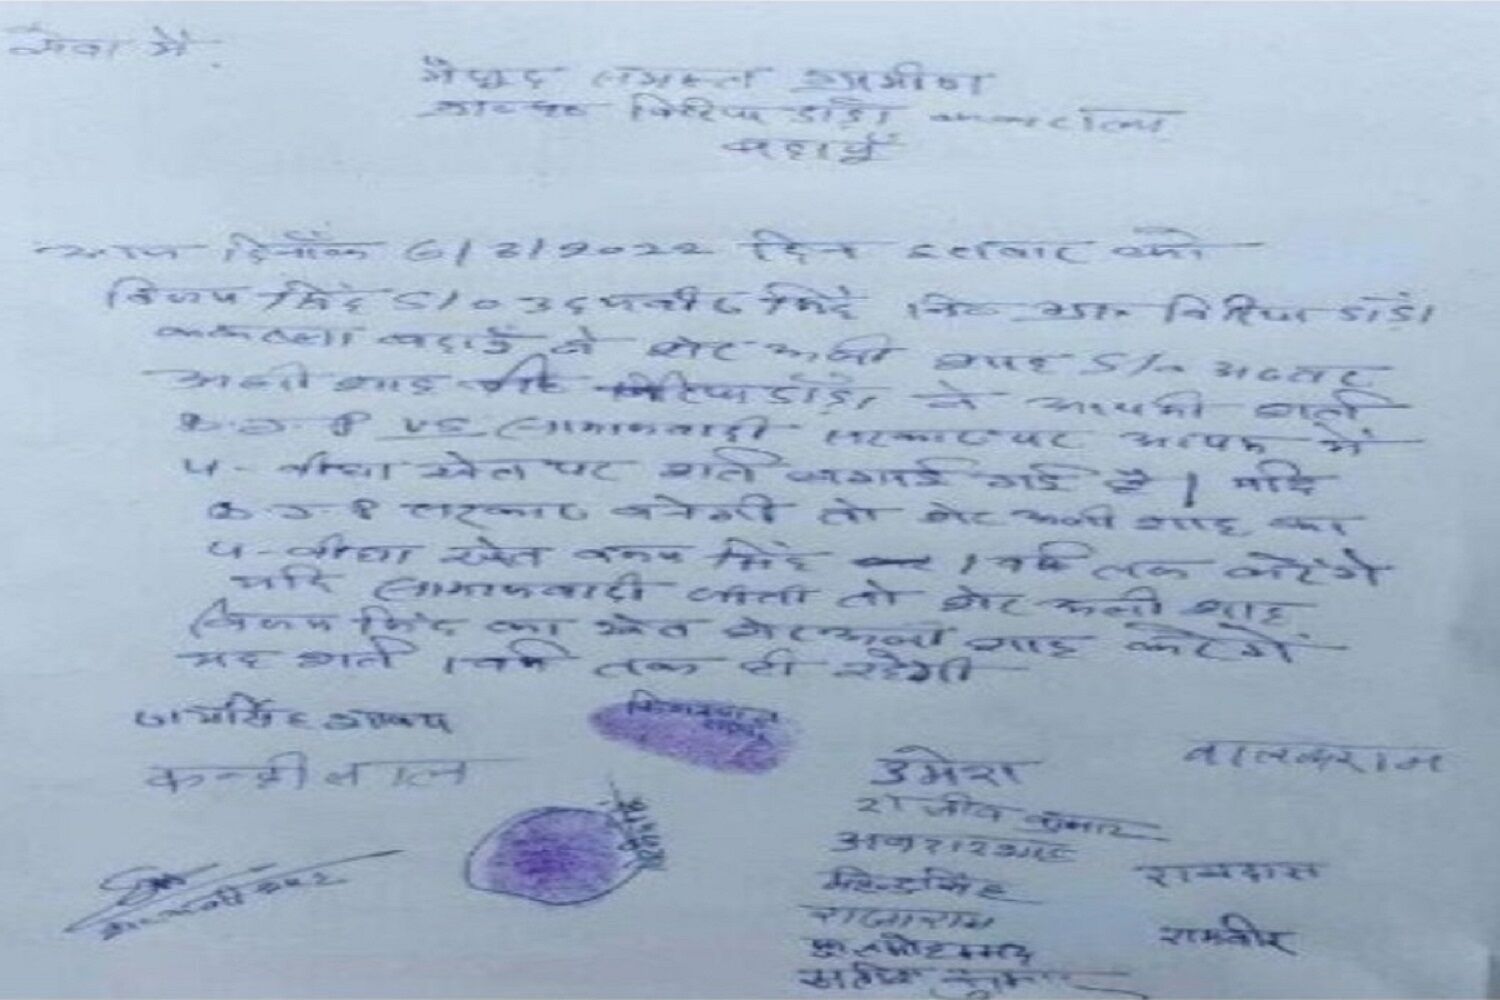 सेवा में,
मौजूद समस्त ग्रामीण
विरिया डांडी ककराला
बदायूँ
आज दिनाँक 6/3/2022 दिन इतवार को
विजय सिंह S/o सिंह नि० ग्राम विरिया डांडी
ककराला बदायूँ ने शेर अली शाह S/o
अली शाह विरिया डांडी ने आपसी शर्त
B.J.P VS समाजवादी सरकार पर आपस में
4-बीघा खेत पर शर्त लगाई गई है। यदि
B.J.P सरकार बनेगी तो शेर अली शाह का
4-बीघा खेत विजय सिंह 1 वर्ष तक करेंगे
यदि समाजवादी जीती तो शेर अली शाह
विजय सिंह का खेत शेर अली शाह करेंगें
यह शर्त 1 वर्ष तक ही रहेगी
जयसिंह शाक्य
कन्हीलाल
उमेश
वालकराम
राजीव कुमार
महेन्द्रसिंह
रामदास
राजाराम
रामवीर
सतीश कुमार